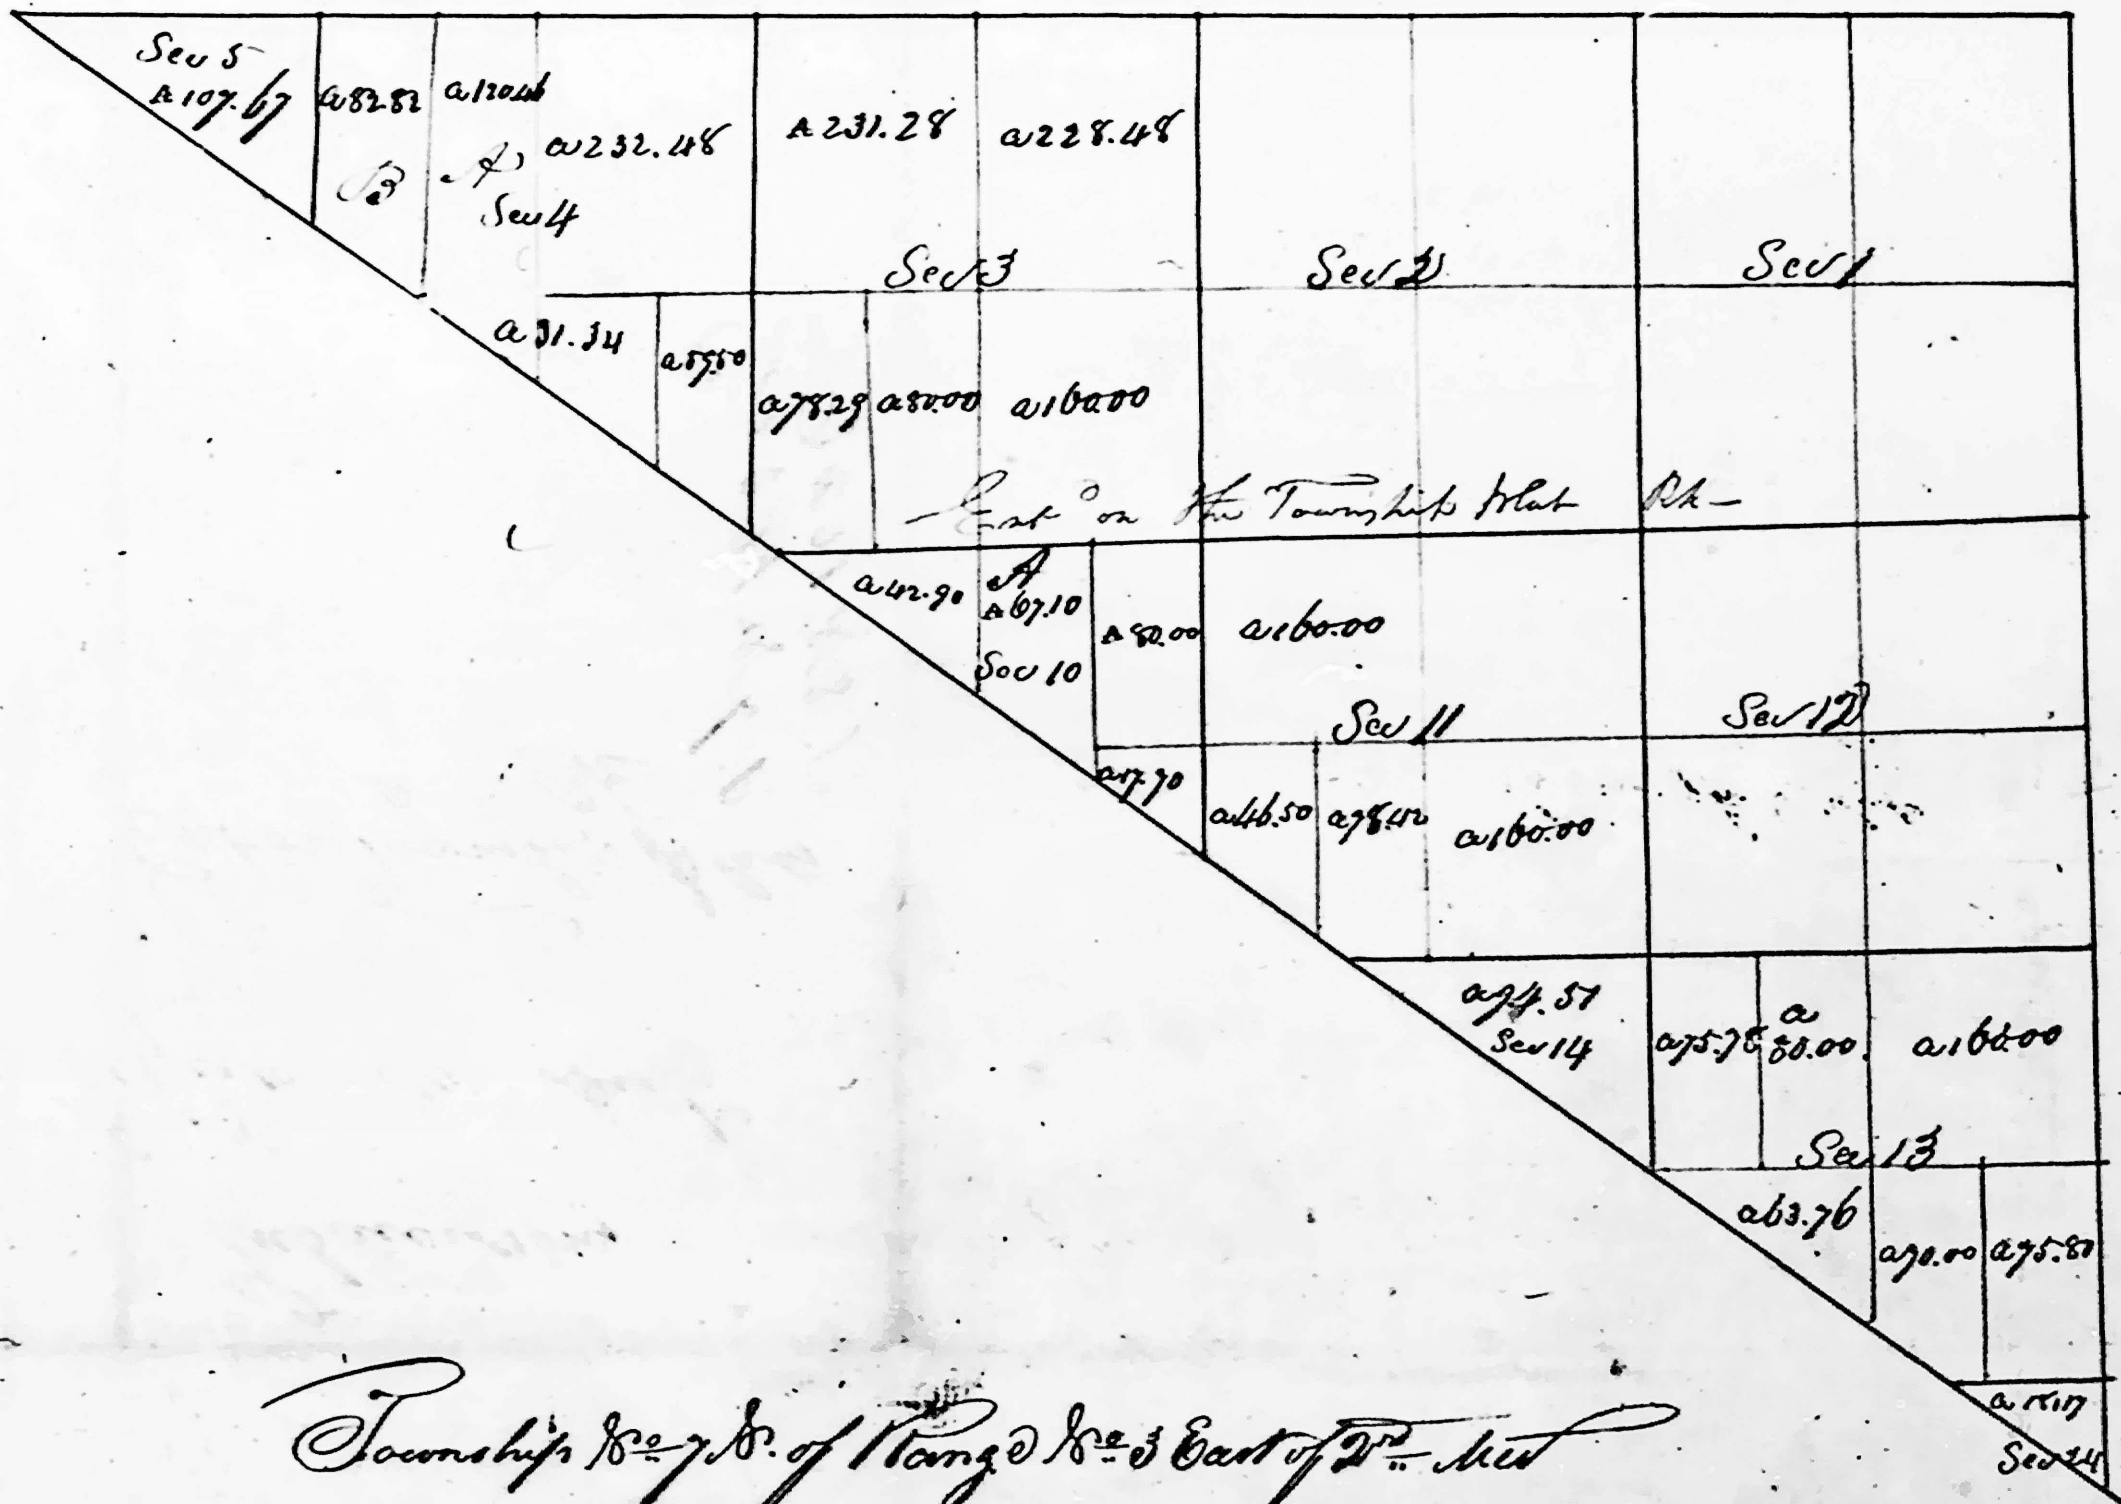 Sec 5
A 107.67
a 82.82
a 120.46
B
A
a 232.48
Sec 4
A 231.28
a 228.48
Sec 3
Sec 2
Sec 1
a 31.34
a 59.50
a 78.29
a 80.00
a 160.00
on the Township Plat
a 42.90
A
A 67.10
Sec 10
A 80.00
a 160.00
Sec 11
Sec 12
a 46.50
a 78.42
a 160.00
Sec 14
a 75.78
a 80.00
a 160.00
Sec 13
a 63.76
a 70.00
a 75.80
Sec 24
Township No 7 N. of Range No 3 East of 2nd Mer